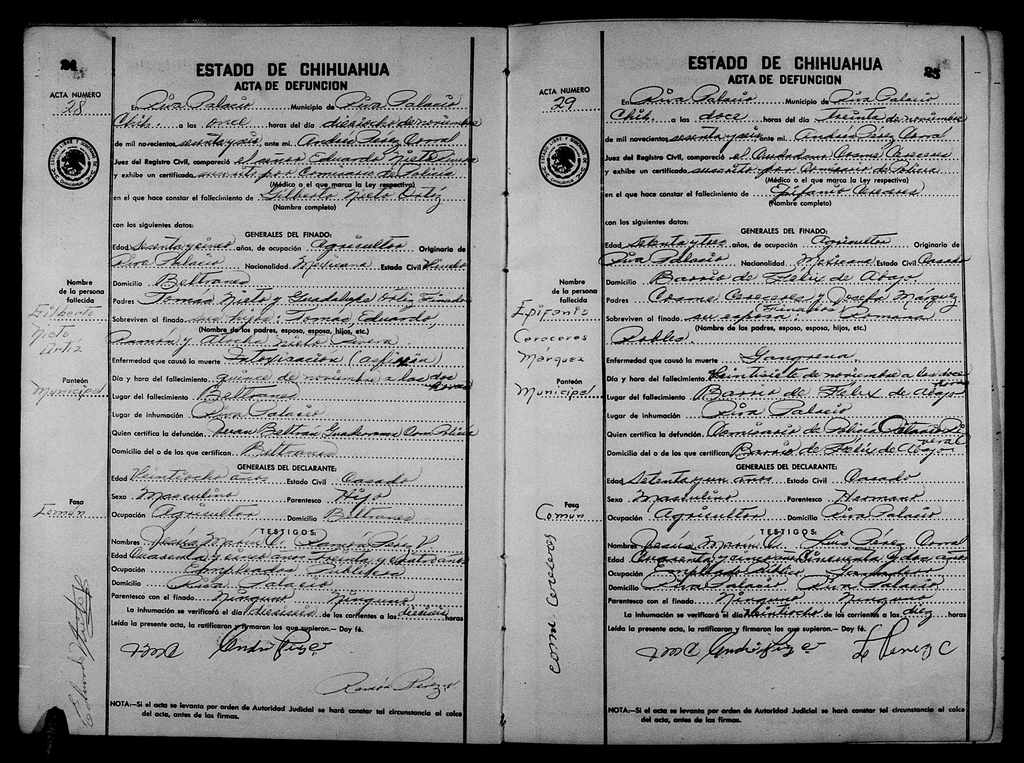 24
ACTA NUMERO
28
ESTADO DE CHIHUAHUA
ACTA DE DEFUNCION
En Riva Palacio Municipio de Riva Palacio
Chih. a las once horas del día dieciocho de noviembre
de mil novecientos sesenta y seis ante mí. Andrés Pérez Corral
Juez del Registro Civil, compareció el señor Eduardo Nieto
y exhibe un certificado suscrito por Comisario de Policía
(Médico o el que marca la Ley respectiva)
en el que hace constar el fallecimiento de Gilberto Nieto Ortíz
(Nombre completo)
con los siguientes datos:
GENERALES DEL FINADO:
Edad Sesenta y cinco años, de ocupación Agricultor Originario de
Riva Palacio Nacionalidad Mexicana Estado Civil Viudo
Domicilio Beltranes
Padres Tomás Nieto y Guadalupe Finados
Sobreviven al finado sus hijos: Tomás, Eduardo,
(Nombre de los padres, esposo, esposa, hijos, etc.)
Ramón y Nieto
Enfermedad que causó la muerte Intoxicación (asfixia)
Día y hora del fallecimiento quince de noviembre a las dos horas
Lugar del fallecimiento Beltranes
Lugar de inhumación Riva Palacio
Quien certifica la defunción Beltrán Com. Policía
Domicilio del o de los que certifican Beltranes
GENERALES DEL DECLARANTE:
Edad Veintiocho años Estado Civil Casado
Sexo Masculino Parentesco Hijo
Ocupación Agricultor Domicilio Beltranes
TESTIGOS:
Nombres Jesús Marín C. Ramón Pérez V.
Edad Cuarenta y cinco años Treinta y cuatro años
Ocupación Empleados Públicos
Domicilio Riva Palacio
Parentesco con el finado Ninguno Ninguno
La inhumación se verificará el día dieciseis de los corrientes a las dieciseis horas
Leída la presente acta, la ratificaron y firmaron los que supieron.— Doy fé.
Ramón Pérez V
NOTA:—Si el acta se levanta por orden de Autoridad Judicial se hará constar tal circunstancia al calce
del acta, antes de las firmas.
Nombre
de la persona
fallecida
Gilberto
Nieto
Ortiz
Panteón
Municipal
Fosa
Común
Eduardo Nieto
25
ACTA NUMERO
29
ESTADO DE CHIHUAHUA
ACTA DE DEFUNCION
En Riva Palacio Municipio de Riva Palacio
Chih. a las doce horas del día treinta de noviembre
de mil novecientos sesenta y seis ante mí. Andrés Pérez Corral
Juez del Registro Civil, compareció el Ciudadano Cosme Caraveo
y exhibe un certificado suscrito por Comisario de Policía
(Médico o el que marca la Ley respectiva)
en el que hace constar el fallecimiento de Epifanio
(Nombre completo)
con los siguientes datos:
GENERALES DEL FINADO:
Edad Setenta y tres años, de ocupación Agricultor Originario de
Riva Palacio Nacionalidad Mexicana Estado Civil Casado
Domicilio Barrio de Félix de Abajo
Padres Cosme y Josefa Márquez Finados
Sobreviven al finado su esposa Romana
(Nombre de los padres, esposo, esposa, hijos, etc.)
Robles.
Enfermedad que causó la muerte Gangrena
Día y hora del fallecimiento Veintisiete de noviembre a las doce horas
Lugar del fallecimiento Barrio de Félix de Abajo
Lugar de inhumación Riva Palacio
Quien certifica la defunción Comisario de Policía
Domicilio del o de los que certifican Barrio de Félix de Abajo
GENERALES DEL DECLARANTE:
Edad Setenta y un años Estado Civil Casado
Sexo Masculino Parentesco Hermano
Ocupación Agricultor Domicilio Riva Palacio
TESTIGOS:
Nombres Jesús Marín C. Luis Pérez Corral
Edad Cuarenta y cinco años Cincuenta y dos años
Ocupación Empleado Público Ganadero
Domicilio Riva Palacio Riva Palacio
Parentesco con el finado Ninguno Ninguno
La inhumación se verificará el día Veintiocho de los corrientes a las diez horas
Leída la presente acta, la ratificaron y firmaron los que supieron.— Doy fé.
L Perez C
NOTA:—Si el acta se levanta por orden de Autoridad Judicial se hará constar tal circunstancia al calce
del acta, antes de las firmas.
Nombre
de la persona
fallecida
Epifanio
Márquez
Panteón
Municipal
Fosa
Común